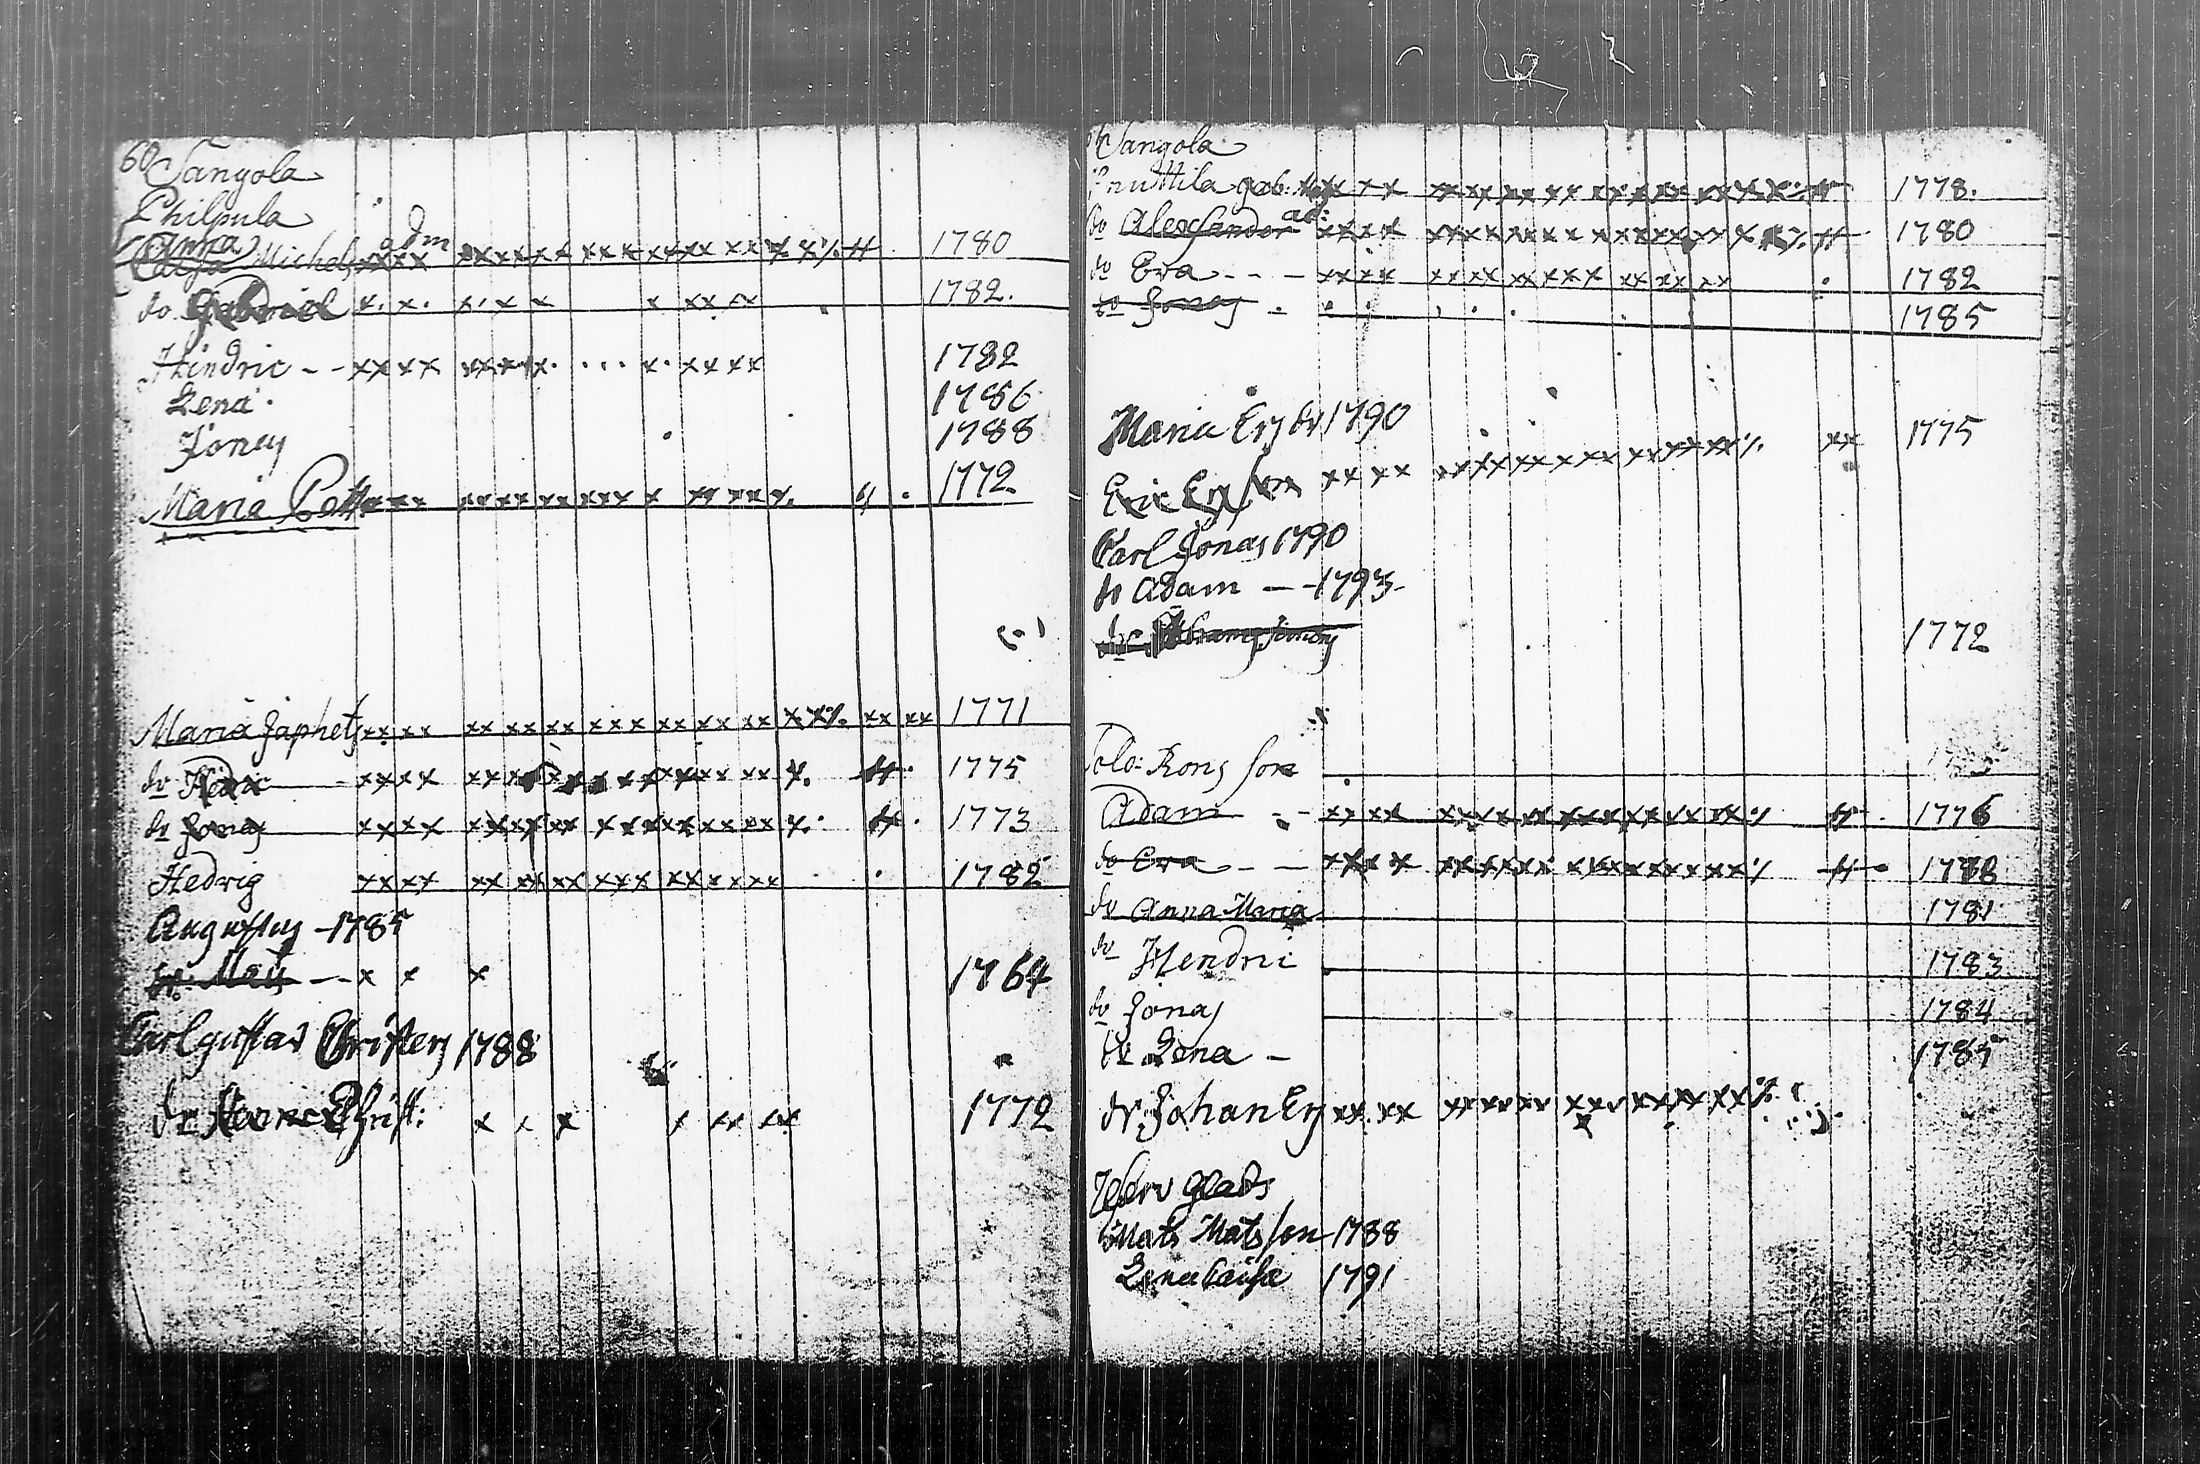 60 Sangola
Philpula
Anna
Caisa Michels adm xxxx xxxxxx xxx xxxx xx x x % H 1780
do Gabriel x. x. x. x x x xx xx 1782.
Hindric - - xxxx xxxxx. ... x. xxxx 1782
Lena 1786
Jonas 1788
Maria xxx xxxxxxxxx x xx xx x. 1772
Maria Japhets xxxx xx xx xx xxx xx xx xx x x %. xx xx 1771
do xxxx xxxx xxxxx xx x. H 1775
do Jonas xxxx xxxxxx xxxxxx xx x. H. 1773
Hedrig xxxx xx xx xx xxx xx xxxx 1782
Augustus - 1785
do Mats - x x x 1764
Carl Gustav Christers 1788
do Christ: x x x x xx xx 1772
Sangola
gab: xx xx xxxx xx xx xxxxx xx x x % H 1778.
do Alexsander ad: xxxx xxxx xxxx xxxxxxx x x % H 1780
do Eva - - - xxxx xxxx xxxxx xxxxxx 1782
do Jonas 1785
Maria Ers dr 1790
Eric Ers son xx xx xxxxxxxxxxxxxxxx %. xx 1775
Carl Jonas 1790
do Adam - - 1793
do 1772
Solo: Rons son
Adam - - xxxx xxxxxxxxxxxxxxx % H. 1776
do Eva - - xxxx xxxxxx xxxxxxxxxx % H 1778
do Anna Maria 1781
do Hendric 1783
do Jonas 1784
do Lena - 1785
dr Johan Ers xx xx xxxxxx xxxxxxxxx %
Glads
Mats Mats son 1788
Lena Caisa 1791